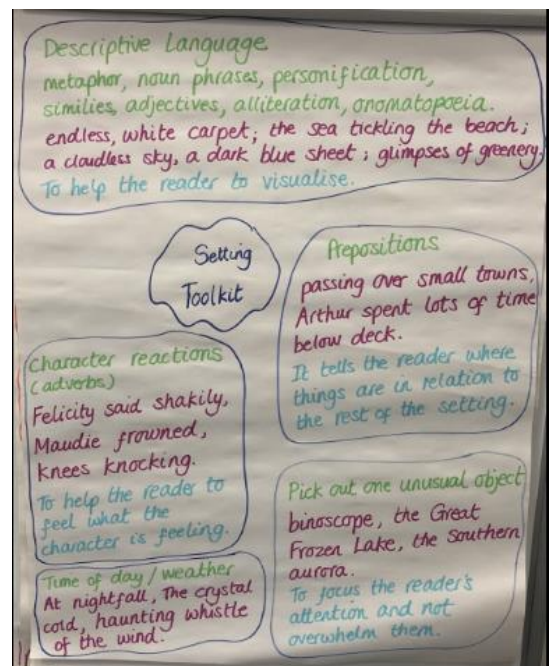 Descriptive Language
metaphor, noun phrases, personification,
similies, adjectives, alliteration, onomatopoeia.
endless, white carpet; the sea tickling the beach;
a cloudless sky, a dark blue sheet; glimpses of greenery.
To help the reader to visualise.
Setting
Toolkit
Prepositions
passing over small towns,
Arthur spent lots of time
below deck.
It tells the reader where
things are in relation to
the rest of the setting.
Character reactions
(adverbs)
Felicity said shakily,
Maudie frowned,
knees knocking.
To help the reader to
feel what the
character is feeling.
Pick out one unusual object
binoscope, the Great
Frozen Lake, the Southern
aurora.
To focus the reader's
attention and not
overwhelm them.
Time of day / weather
At nightfall, The crystal
cold, haunting whistle
of the wind.